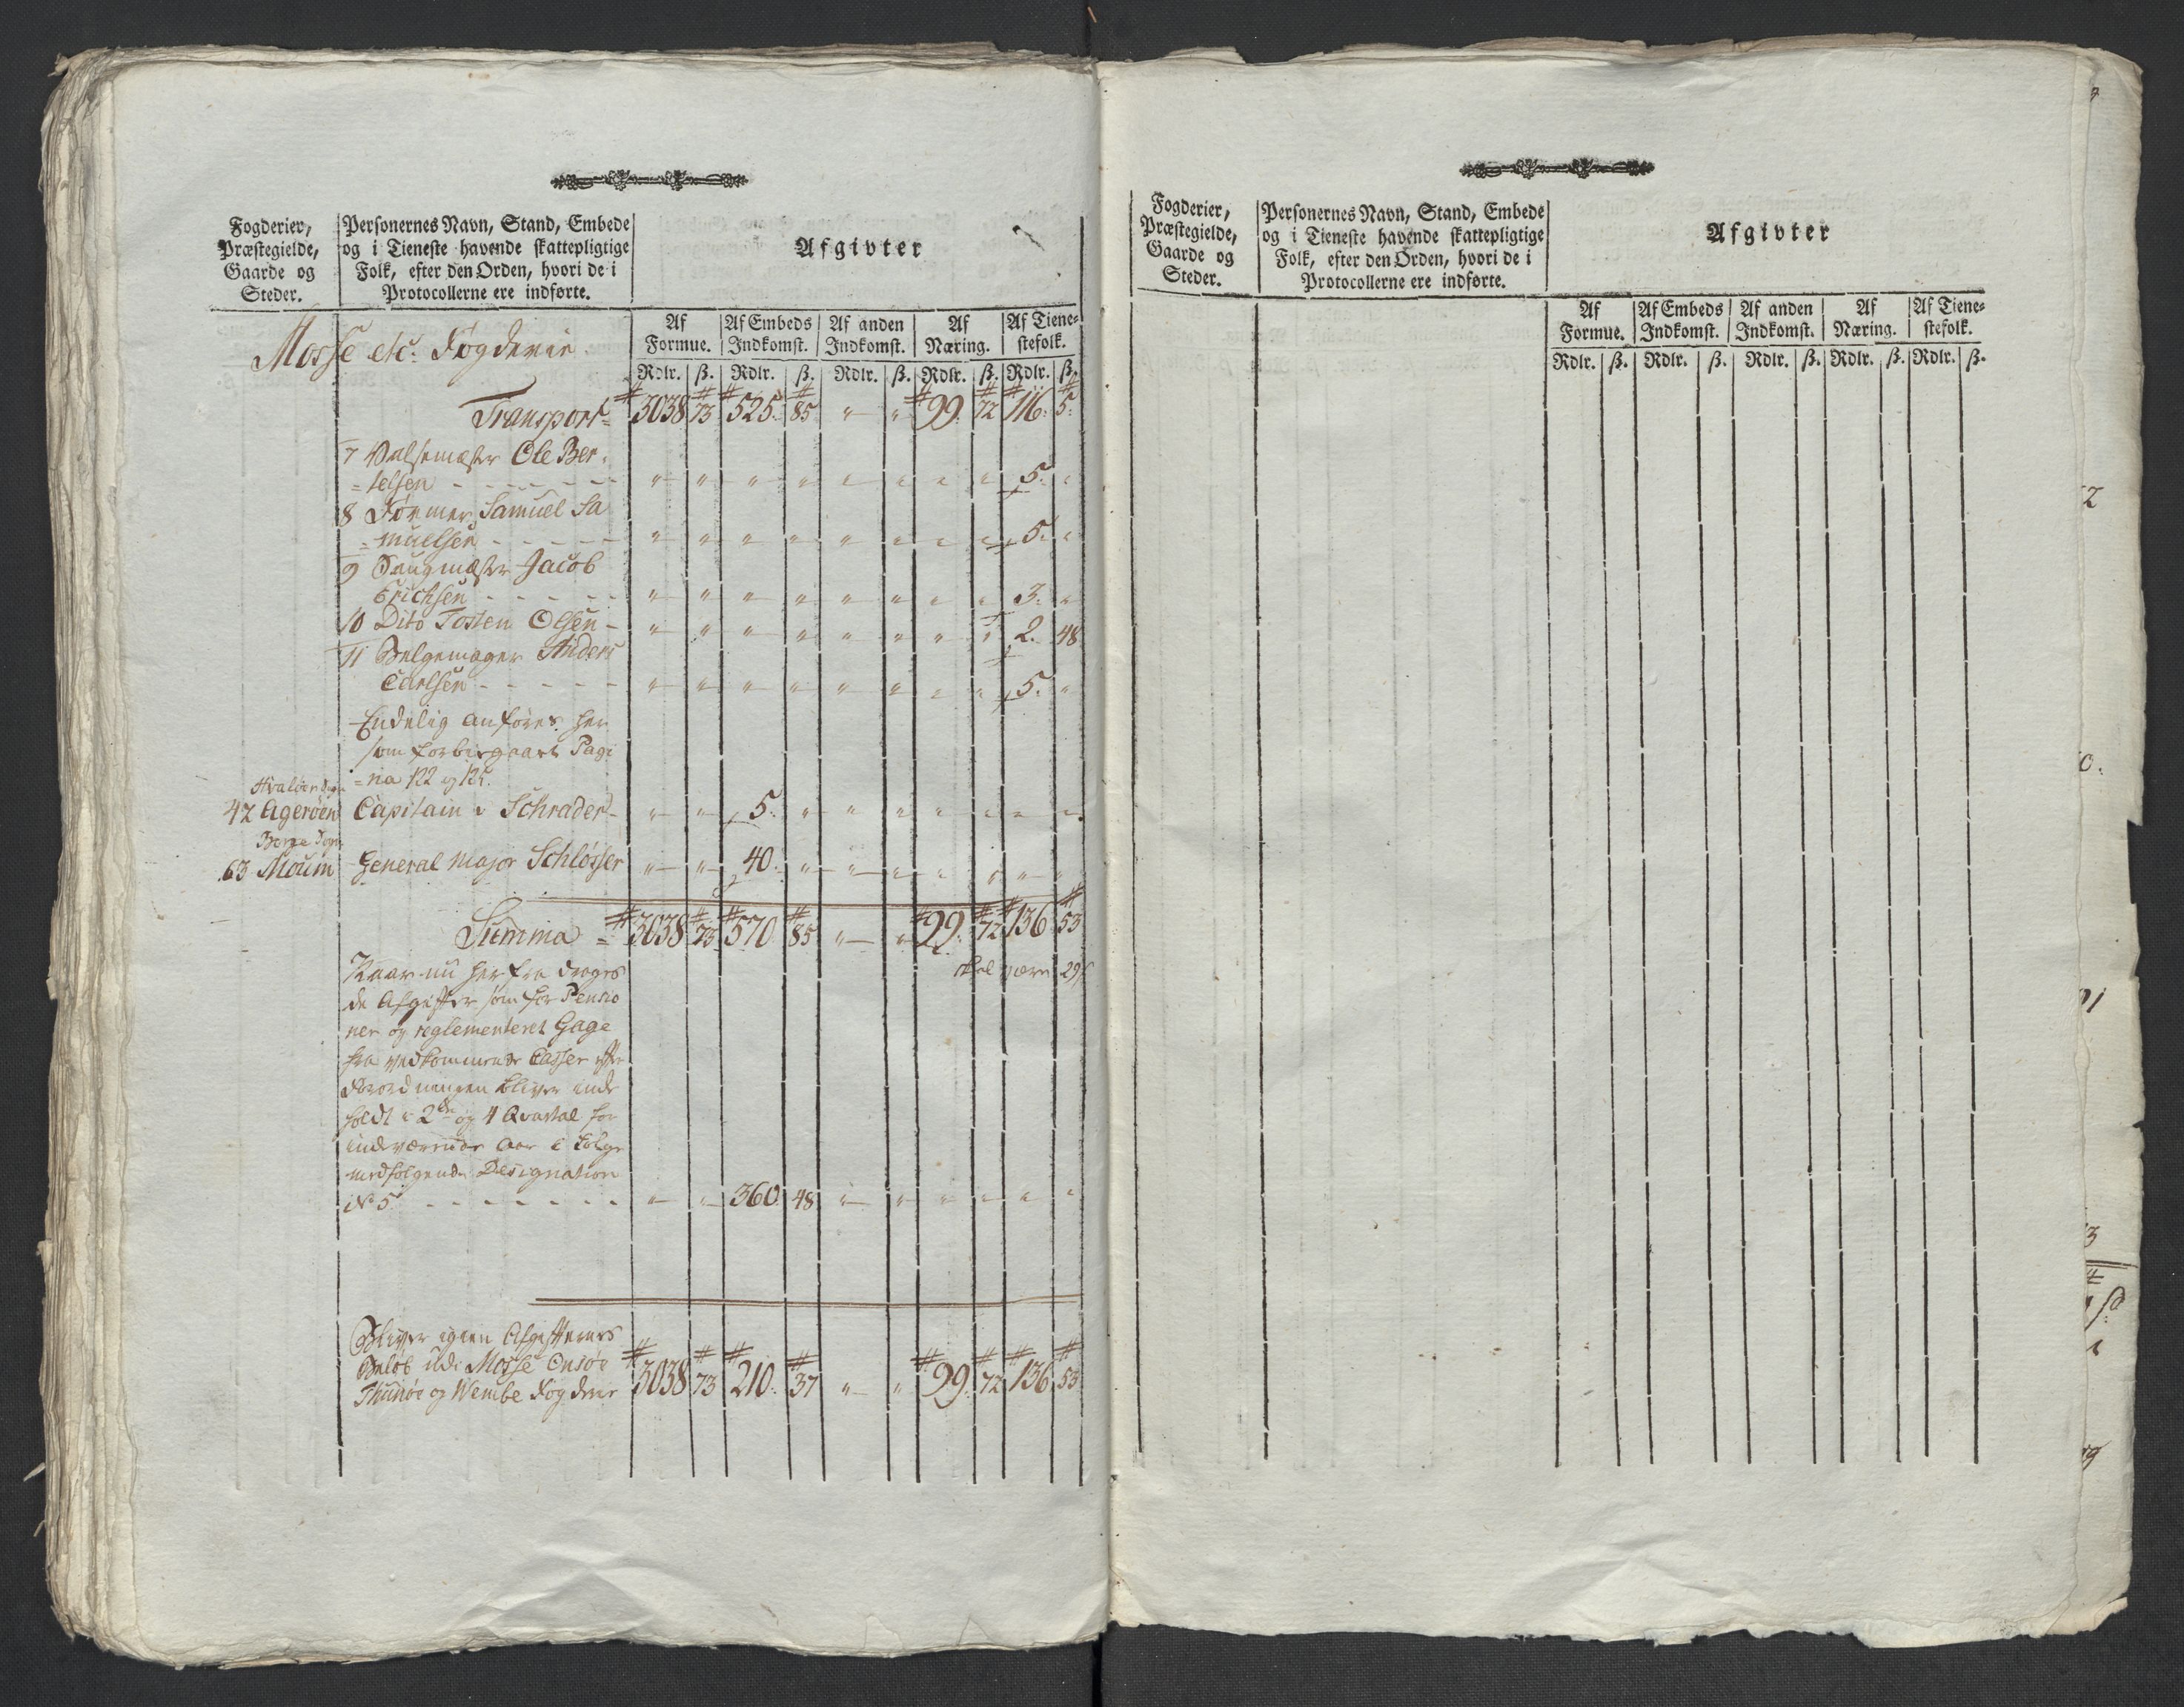 Fogderier,
Præstegielde,
Gaarde og
Steder.
Personernes Navn, Stand, Embede
og i Tieneste havende skattepligtige
Folk, efter den Orden, hvori de i
Protocollerne ere indførte.
Afgivter
Af Formue. Af Embeds Indkomst. Af anden Indkomst. Af Næring. Af Tiene=stefolk.
Rdlr. ß. Rdlr. ß. Rdlr. ß. Rdlr. ß. Rdlr. ß.
Mosse etc: Fogderie
Transport= 3038 73 525. 85 " " 99. 72 116. 5.
7 Ole Ber=
=telsen - - - " " " " " " " " 5. "
8 Former Samuel Sa
=muelsen - - - " " " " " " " " 5. "
9 Saugmester Jacob
Erichsen - - - " " " " " " " " 3. "
10 Dito Tosten Olsen - " " " " " " " " 2. 48
11 Belgemager Anders
Carlsen - - - " " " " " " " " 5. "
Endelig anføres her
som forbigaaet Pagi
=na 122 og 125.
Hvaløer
42 Agerøen Capitain v Schrader - " " 5. " " " " " " "
Borge
63 Moum General Major Schløsser " " 40. " " " " " " "
Summa = 3038 73 570 85 " " 99. 72 136 53
skal være 29ß
Naar nu herfra drages
de Afgifter som for Pensio
ner og reglementeret Gage
fra vedkommende Casser efter
Forordningen bliver inde
holdt i 2de og 4 Qvartal for
indeværende Aar i Følge
medfølgende Designation
No 5 - - - " " 360. 48 " " " " " "
Bliver igien Afgifternes
Beløb udi Mosse Onsøe
Thunøe og Wembe Fogderie 3038 73 210. 37 " " 99. 72 136 53
Fogderier,
Præstegielde,
Gaarde og
Steder.
Personernes Navn, Stand, Embede
og i Tieneste havende skattepligtige
Folk, efter den Orden, hvori de i
Protocollerne ere indførte.
Afgivter
Af Formue. Af Embeds Indkomst. Af anden Indkomst. Af Næring. Af Tiene=stefolk.
Rdlr. ß. Rdlr. ß. Rdlr. ß. Rdlr. ß. Rdlr. ß.